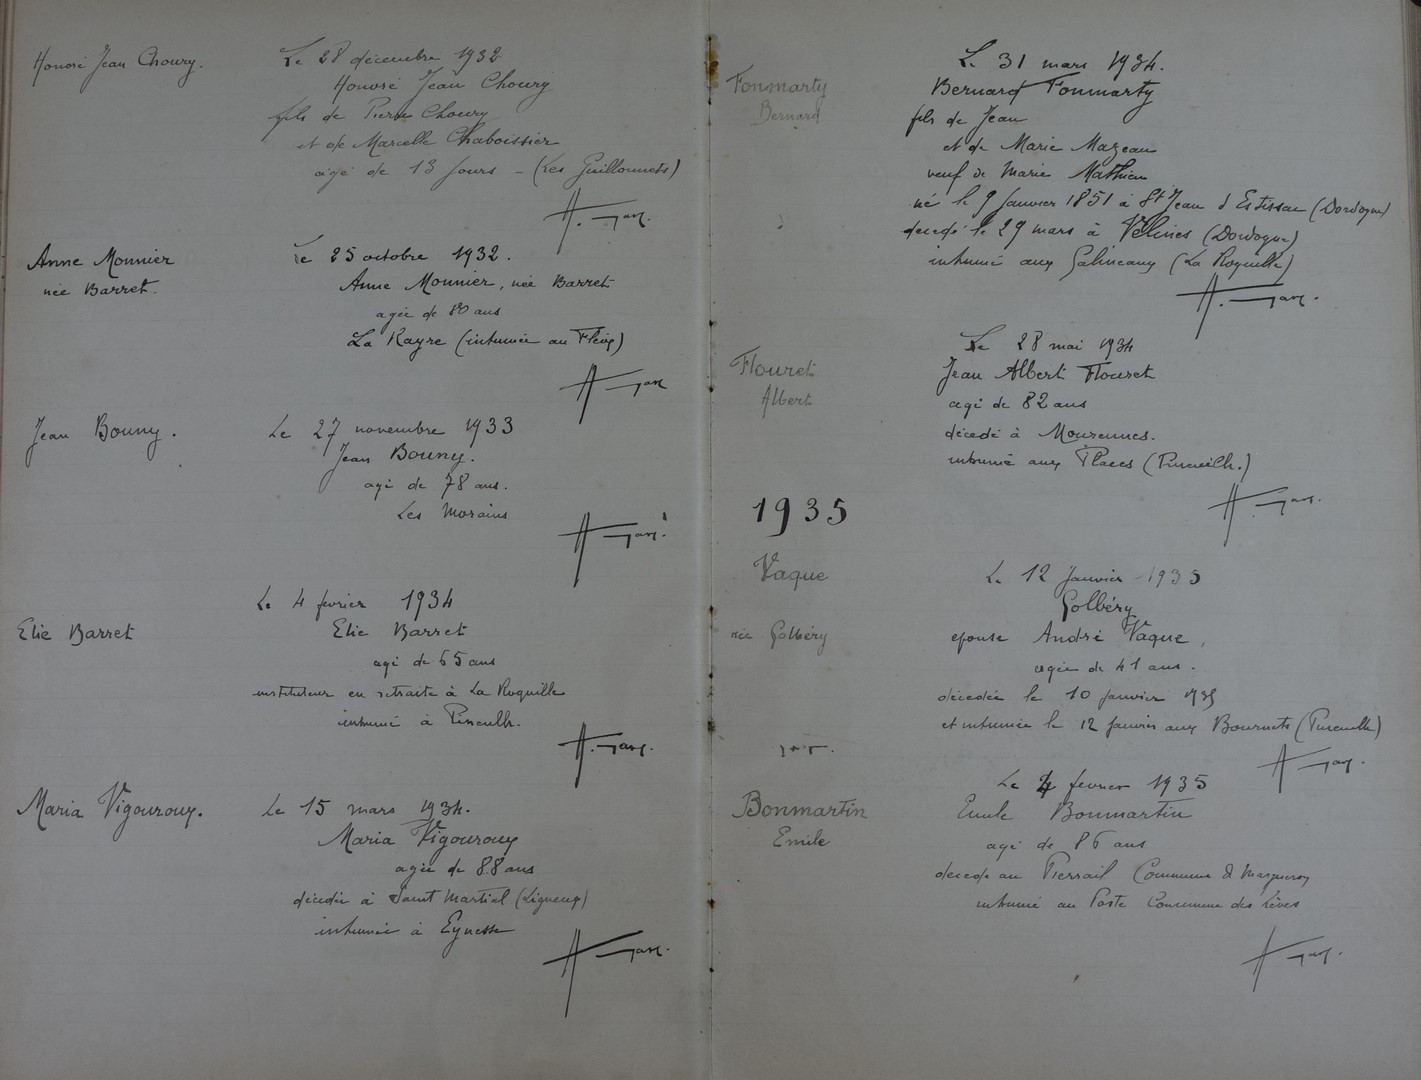 Honoré Jean Choury.
Le 28 décembre 1932
Honoré Jean Choury
fils de Pierre Choury
et de Marcelle Chaboissier
agé de 13 jours - (Les Guillonnets)
Anne Monnier
née Barret.
Le 25 octobre 1932.
Anne Monnier, née Barret
agée de 80 ans
La Rayre (inhumée au Fleix)
Jean Bouny.
Le 27 novembre 1933
Jean Bouny.
agé de 78 ans.
Les Morains
Elie Barret
Le 4 fevrier 1934
Elie Barret
agé de 65 ans
instituteur en retraite à La Roquille
inhumé à Pineuilh.
Maria Vigouroux.
Le 15 mars 1934.
Maria Vigouroux
agée de 88 ans
décédée à Saint Martial (Ligueux)
inhumée à Eynesse
Fonmarty
Bernard
Le 31 mars 1934.
Bernard Fonmarty
fils de Jean
et de Marie Mazeau
veuf de Marie Mathieu
né le 9 Janvier 1851 à St Jean d'Estissac (Dordogne)
decedé le 29 mars à Vélines (Dordogne)
inhumé aux Galineaux (La Roquille)
Flouret
Albert
Le 28 mai 1934
Jean Albert Flouret
agé de 82 ans
décédé à Mourennes.
inhumé aux Places (Pineuilh.)
1935
Vaque
née Golbéry
Le 12 Janvier 1935
Golbéry
epouse André Vaque,
agée de 41 ans.
décédée le 10 janvier 1935
et inhumée le 12 janvier aux Bournets (Pineuilh)
Bonmartin
Emile
Le 4 fevrier 1935
Emile Bonmartin
agé de 86 ans
decedé au Pierrail Commune de Margueron
inhumé au Poste Commune des Lèves